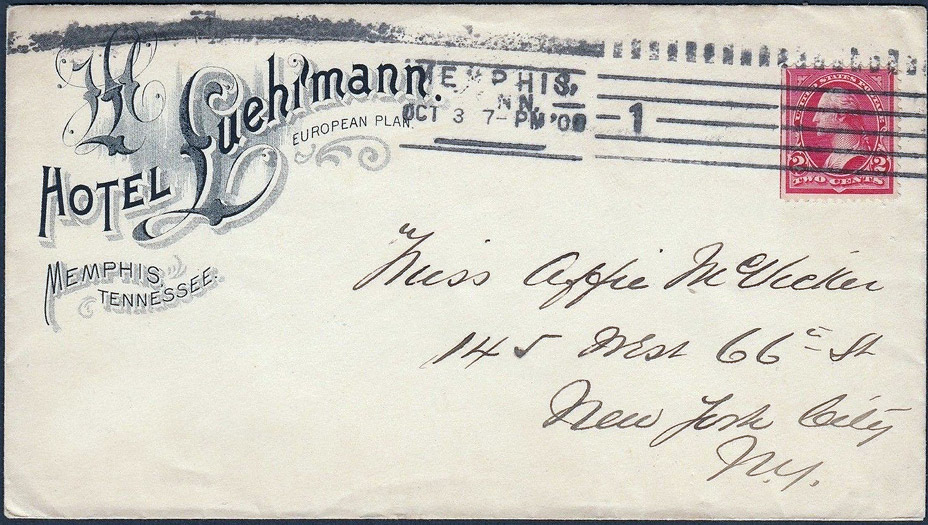 Hotel Luehrmann.
EUROPEAN PLAN.
MEMPHIS,
TENNESSEE.
MEMPHIS,
NN.
OCT 3 7-PM '00
1
UNITED STATES
2 2
TWO CENTS
Miss Affie McVicker
145 West 66 St
New York City
N.Y.